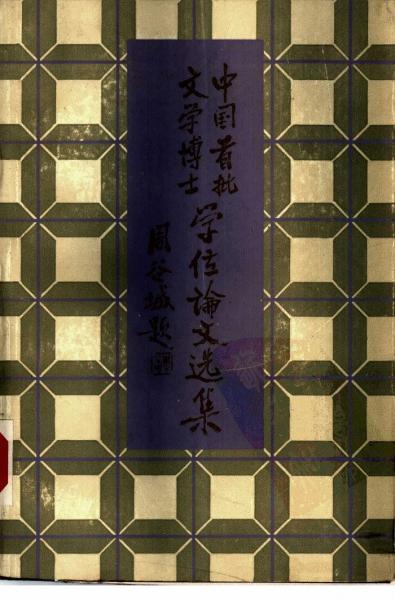 中国首批
文学博士
学位论文选集
周谷城题